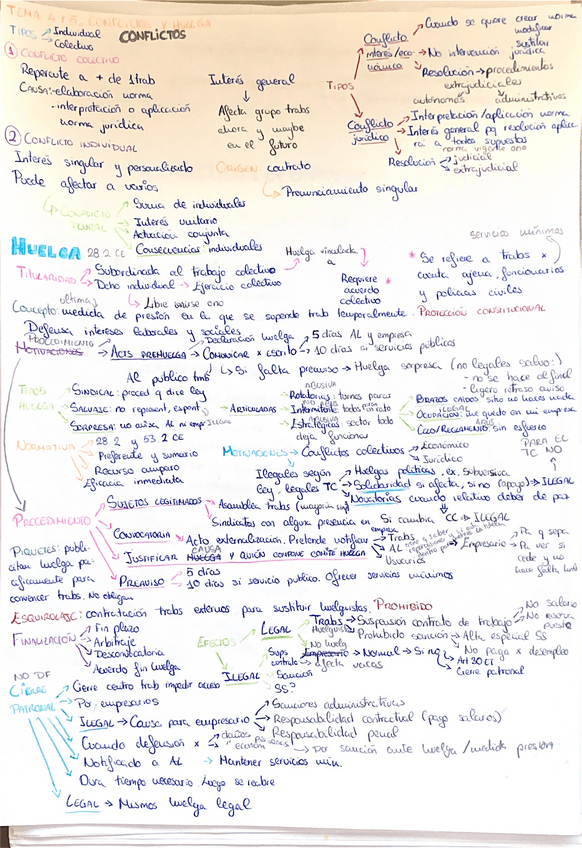 TEMA 4 Y 5. CONFLICTOS Y HUELGA
TIPOS → Individual
→ Colectivo
CONFLICTOS
1 CONFLICTO COLECTIVO
Repercute a + de 1 trab
CAUSA: elaboración norma
interpretación o aplicación
norma jurídica
Interés general
↓
Afecta grupo trabs
ahora y maybe
en el futuro
TIPOS
Conflicto
interés/eco-
nómico
Cuando se quiere crear norma
modificar
sustituir
No intervención jurídica
Resolución → procedimientos
extrajudiciales
autónomos administrativos
Conflicto
jurídico
Interpretación/aplicación norma
Interés general pq resolución aplica-
rá a todos supuestos
norma vigente
Resolución → judicial
extrajudicial
2 CONFLICTO INDIVIDUAL
Interés singular y personalizado
Puede afectar a varios
ORIGEN contrato
Pronunciamiento singular
CONFLICTO
PLURAL
Suma de individuales
Interés unitario
Actuación conjunta
Consecuencias individuales
HUELGA 28.2 CE
TITULARIDAD
Subordinada al trabajo colectivo
Dcho individual → Ejercicio colectivo
Libre unirse o no
Huelga vinculada
a
Requiere
acuerdo
colectivo
servicios mínimos
* Se refiere a trabs x
cuenta ajena, funcionarios
y policías civiles
PROTECCIÓN CONSTITUCIONAL
última
Concepto: medida de presión en la que se suspende trab temporalmente.
Defensa intereses laborales y sociales
PROCEDIMIENTO
MOTIVACIONES → ACTS PREHUELGA
Declaración huelga
Comunicar x escrito
5 días AL y empresa
10 días si servicios públicos
Al público tmb
Si falta preaviso → Huelga sorpresa (no legales salvo:)
- no se hace al final
- ligero retraso aviso
TIPOS
HUELGA
SINDICAL: proced q dice ley
SALVAJE: no represent, espont
SORPRESA: no avisa AL ni emp ILEGAL
ARTICULADAS
ABUSIVA
Rotatorias: turnos paros
Intermitente: todos paran rato
ABUSIVA
Estratégicas: sector todo
deja funcionar
BRAZOS CAÍDOS: sitio no haces nada
ILEGAL
OCUPACIÓN: me quedo en mi empresa
CELO/REGLAMENTO: sin esfuerzo
NORMATIVA
28.2 y 53.2 CE
Preferente y sumario
Recurso amparo
Eficacia inmediata
MOTIVACIONES → Conflictos colectivos → Económico
Jurídico
PARA EL
TC NO
Ilegales según
ley, legales TC
Huelgas políticas, ex. Subversiva
Solidaridad si afecta, si no (apoyo) → ILEGAL
Novatorias cuando relativo deber de paz
Si cambia CC → ILEGAL
PROCEDIMIENTO
SUJETOS LEGITIMADOS
Asamblea trabs
Sindicatos con alguna presencia en
empresa
CONVOCATORIA
Acto externalización. Pretende notificar
Trabs
AL
Usuarios
Empresario
Pa q sepa
Pa ver si
cede y no
hace falta
JUSTIFICAR CAUSA
HUELGA Y QUIÉN COMPONE COMITÉ HUELGA
PREAVISO
5 días
10 días si servicio público. Ofrecer servicios mínimos
PIQUETES: publi-
citan huelga pa-
cíficamente para
convencer trabs. No obligan
ESQUIROLAJE: contratación trabs externos para sustituir huelguistas. PROHIBIDO
FINALIZACIÓN
Fin plazo
Arbitraje
Desconvocatoria
Acuerdo fin huelga
EFECTOS
LEGAL
Trabs
Huelguistas
Suspensión contrato de trabajo
No salario
No reserva
puesto
Prohibido sanción → Alta especial SS
No huelg
Empresario → Normal → Si no
No paga x desempleo
Art 30 ET
Cierre patronal
ILEGAL
Sups
contrato
afecta vacas
Sanción
SS?
NO DF
CIERRE
PATRONAL
Cierre centro trab impedir acceso
Por empresarios
ILEGAL → Causa para empresario
Sanciones administrativas
Responsabilidad contractual (pago salarios)
Responsabilidad penal
Cuando defensión x
daños personas
económ
Por sanción ante huelga/medida presión
Notificado a AL → Mantener servicios mín.
Dura tiempo necesario luego se reabre
LEGAL → Mismos huelga legal